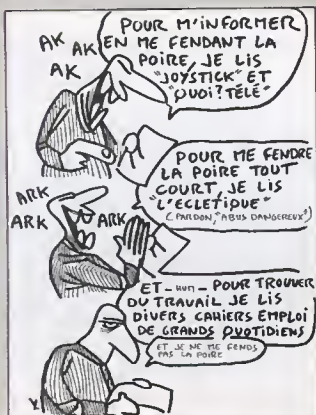 AK
AK
AK
POUR M'INFORMER
EN ME FENDANT LA
POIRE, JE LIS
"JOYSTICK" ET
"QUOI? TÉLÉ"
ARK
ARK
ARK
POUR ME FENDRE
LA POIRE TOUT
COURT, JE LIS
"L'ECLETIQUE"
(PARDON, "ABUS DANGEREUX")
ET - HUM - POUR TROUVER
DU TRAVAIL JE LIS
DIVERS CAHIERS EMPLOI
DE GRANDS QUOTIDIENS
ET JE NE ME FENDS
PAS LA POIRE